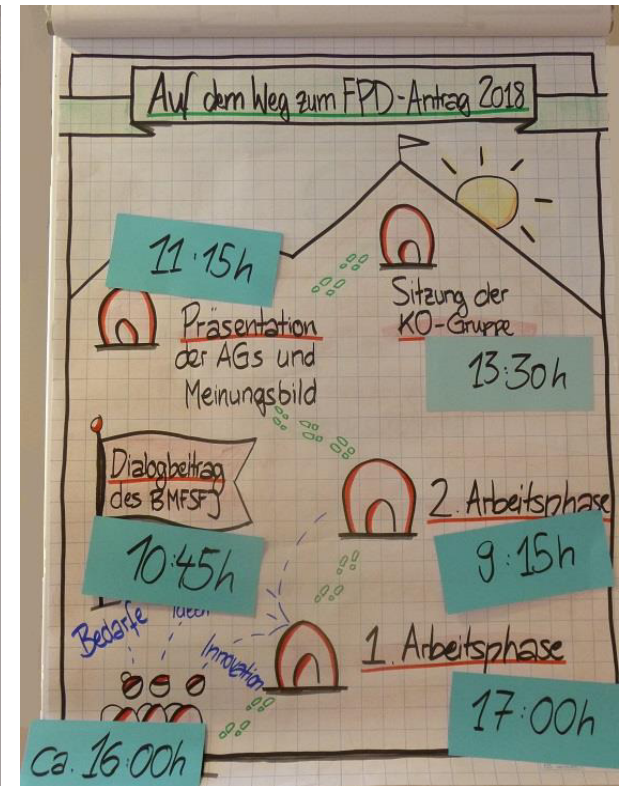 Auf dem Weg zum FPD-Antrag 2018
11:15h
Sitzung der
KO-Gruppe
13:30h
Präsentation
der AGs und
Meinungsbild
Dialogbeitrag
des BMFSFJ
10:45h
2. Arbeitsphase
9:15h
Bedarfe
Innovation
1. Arbeitsphase
17:00h
ca. 16:00h